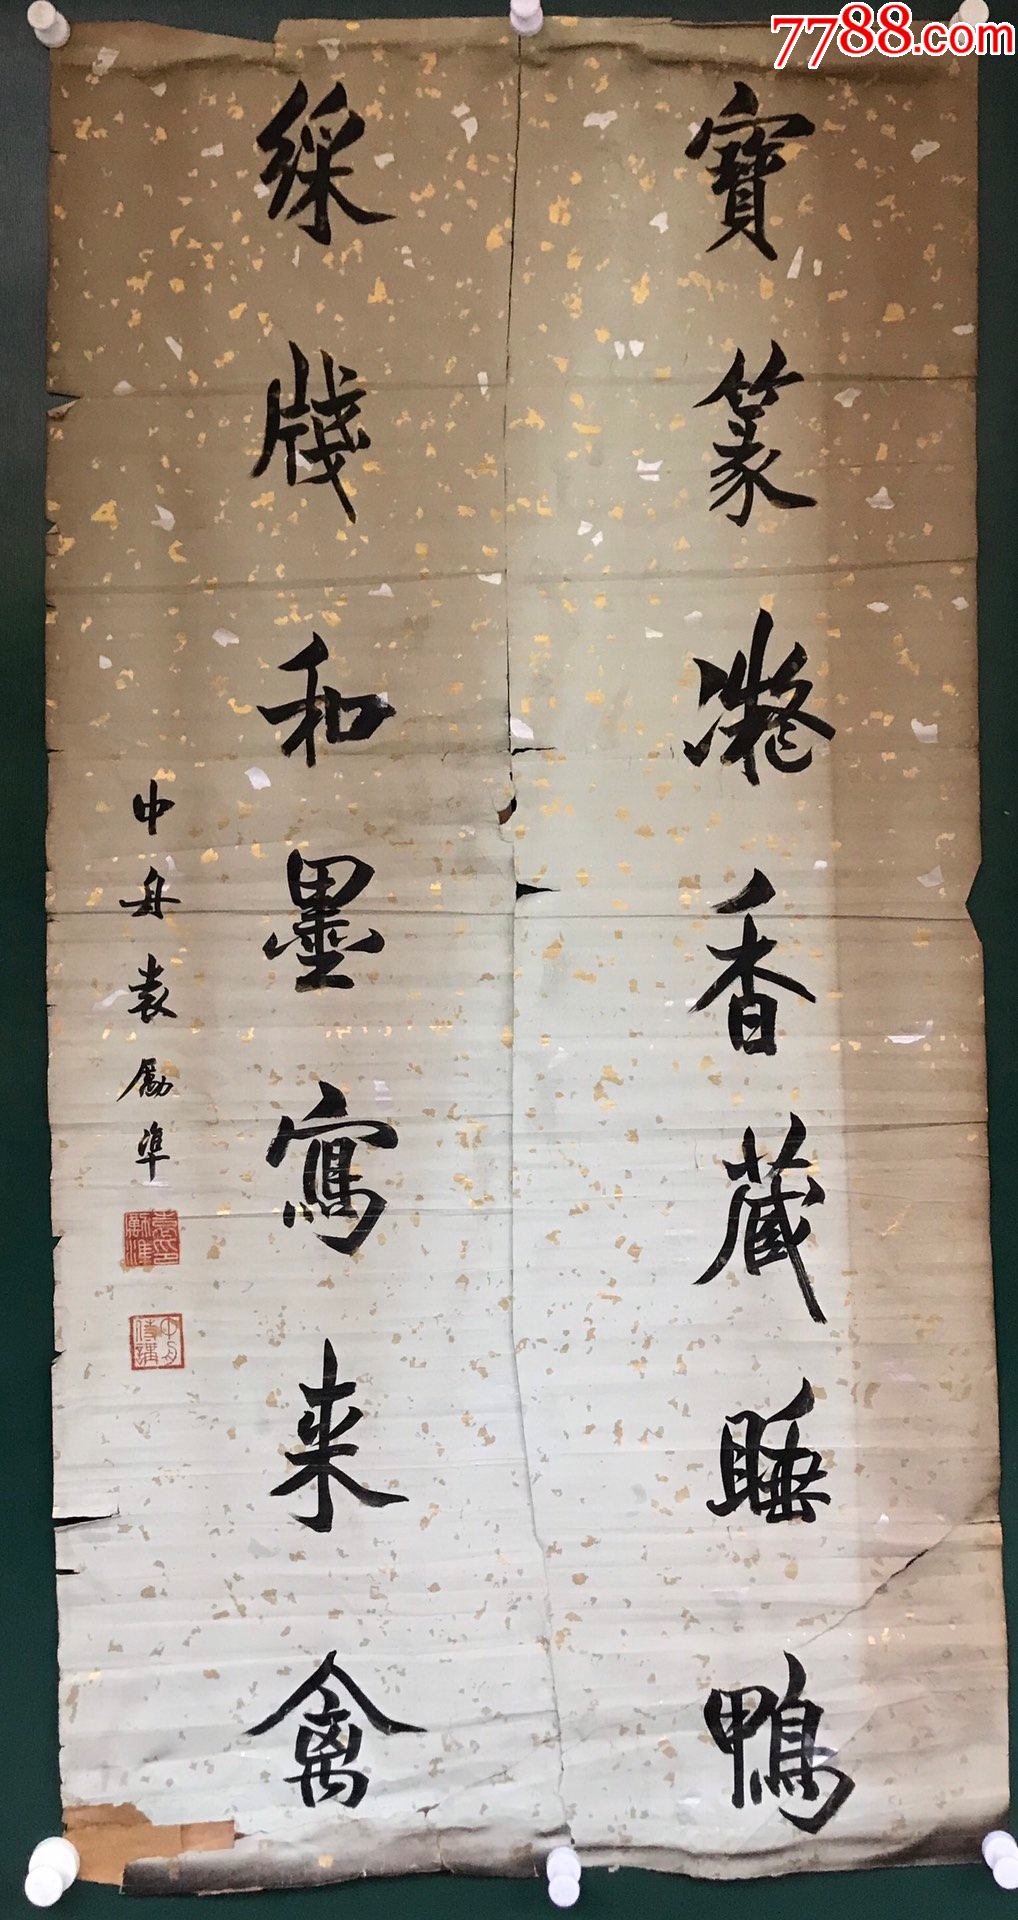 7788.com
寶篆凝香藏睡鴨
綵牋和墨寫来禽
中舟袁勵準
袁印勵準
中舟侍講